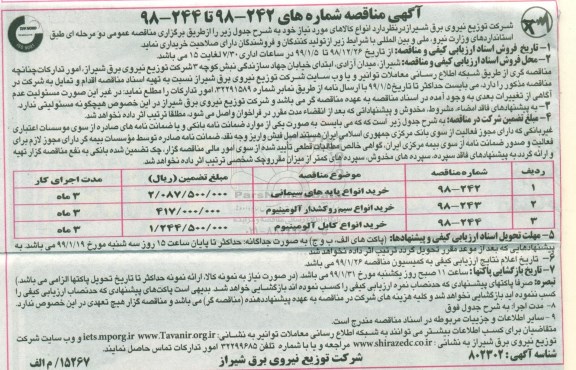 آگهی مناقصه شماره های ۲۴۲-۹۸ تا ۲۴۴-۹۸
شرکت توزیع نیروی برق شیراز درنظر دارد انواع کالاهای مورد نیاز خود به شرح جدول زیر را از طریق برگزاری مناقصه عمومی دو مرحله ای طبق
استانداردهای وزارت نیرو، ملی و بین المللی با شرایط زیر از تولید کنندگان و فروشندگان دارای صلاحیت خریداری نماید
۱- تاریخ فروش اسناد ارزیابی کیفی و مناقصه: از تاریخ ۹۸/۱۲/۲۶ تا ۹۹/۱/۵ در ساعات اداری ۷:۳۰ لغایت ۱۵ می باشد
۲- محل فروش اسناد ارزیابی کیفی و مناقصه: شیراز، میدان آزادی، ابتدای خیابان جهاد سازندگی نبش کوچه ۳ شرکت توزیع نیروی برق شیراز، امور تدارکات چنانچه
مناقصه گری از طریق شبکه اطلاع رسانی معاملات توانیر و یا وب سایت شرکت توزیع نیروی برق شیراز نسبت به تهیه اسناد مناقصه اقدام و تمایل به شرکت در
مناقصه مذکور را دارد، می بایست حداکثر تا تاریخ ۹۹/۱/۵ با ارسال نامه از طریق نمابر شماره ۳۲۲۹۱۵۸۹ امور تدارکات را مطلع نماید، در غیر این صورت مسئولیت عدم
آگاهی از تغییرات بعدی به وجود آمده در اسناد مناقصه به عهده مناقصه گر می باشد و شرکت توزیع نیروی برق شیراز در این خصوص هیچگونه مسئولیتی ندارد.
۳- به پیشنهادهای فاقد امضاء، مشروط، مخدوش و پیشنهاداتی که بعد از انقضاء مدت مقرر در فراخوان واصل می شود، مطلقا ترتیب اثر داده نخواهد شد
۴- مبلغ تضمین شرکت در مناقصه: به شرح جدول زیر است که می بایست به صورت یکی از موارد ضمانت نامه بانکی و یا ضمانت نامه های صادره از سوی موسسات اعتباری
غیربانکی که دارای مجوز فعالیت از سوی بانک مرکزی جمهوری اسلامی ایران هستند اصل فیش واریز وجه نقد، ضمانت نامه صادره توسط مؤسسات بیمه گر دارای مجوز لازم برای
فعالیت و صدور ضمانت نامه از سوی بیمه مرکزی ایران، گواهی خالص مطالبات قطعی تأیید شده از سوی امور مالی مناقصه گزار، چک تضمین شده بانکی به نفع مناقصه گزار تهیه
و ارائه گردد به پیشنهادهای فاقد سپرده، سپرده های مخدوش، سپرده های کمتر از میزان مقرر و چک شخصی ترتیب اثر داده نخواهد شد.
ردیف شماره مناقصه موضوع مناقصه مبلغ تضمین (ریال) مدت اجرای کار
۱ ۹۸-۲۴۲ خرید انواع پایه های سیمانی ۲/۰۸۷/۵۰۰/۰۰۰ ۳ ماه
۲ ۹۸-۲۴۳ خرید انواع سیم روکشدار آلومینیوم ۴۱۷/۰۰۰/۰۰۰ ۳ ماه
۳ ۹۸-۲۴۴ خرید انواع کابل آلومینیوم ۱/۲۴۴/۵۰۰/۰۰۰ ۳ ماه
۵- مهلت تحویل اسناد ارزیابی کیفی و پیشنهادها: (پاکت های الف، ب و ج) به صورت جداگانه: حداکثر تا پایان ساعت ۱۵ روز سه شنبه مورخ ۹۹/۱/۱۹ می باشد. به
پیشنهادهایی که بعد از موعد مقرر تحویل گردد ترتیب اثر داده نخواهد شد.
۶- تاریخ اعلام نتایج ارزیابی کیفی به کمیسیون مناقصه ۹۹/۱/۲۶ می باشد.
۷- تاریخ بازگشایی پاکتها: ساعت ۱۱ صبح روز یکشنبه مورخ ۹۹/۱/۳۱ می باشد. (در صورت نیاز به نمونه کالا ارائه نمونه حداکثر تا تاریخ تحویل پاکتها الزامی می باشد)
تبصره: صرفا پاکتهای پیشنهادی که حد نصاب نمره ارزیابی کیفی را کسب نموده اند بازگشایی خواهد شد. بدیهی است پاکت های پیشنهادی که حد نصاب ارزیابی کیفی را
کسب ننموده اند بازگشایی نخواهد شد و کلیه هزینه های شرکت در مناقصه به عهده پیشنهاددهنده (مناقصه گر) می باشد و مناقصه گزار هیچ تعهدی در این خصوص ندارد.
۸- مدت اجرا به شرح جدول فوق
۹- سایر اطلاعات و جزییات مربوطه در اسناد مناقصه مندرج است.
متقاضیان برای کسب اطلاعات بیشتر می توانند به شبکه اطلاع رسانی معاملات توانیر به نشانی: www.Tavanir.org.ir و iets.mporg.ir و وب سایت شرکت
توزیع نیروی برق شیراز به نشانی: www.shirazedc.co.ir مراجعه و یا با شماره تلفن ۳۲۲۹۹۶۸۵ امور تدارکات تماس حاصل نمایند.
شناسه آگهی: ۸۰۲۳۰۲ شرکت توزیع نیروی برق شیراز ۱۵۲۶۷/م الف